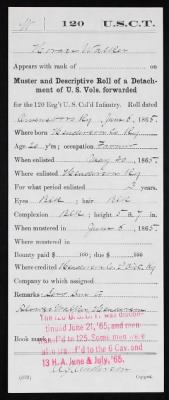 W 120 U.S.C.T.
Horace Walker
Appears with rank of
Muster and Descriptive Roll of a Detach-
ment of U. S. Vols. forwarded
for the 120 Reg't U. S. Col'd Infantry. Roll dated
Owensboro Ky June 5, 1865.
Where born Henderson Co. Ky.
Age 20 y'rs; occupation Farmer
When enlisted May 20, 1865.
Where enlisted Henderson Ky
For what period enlisted 3 years.
Eyes Blk; hair Blk
Complexion Blk; height 5 ft. 7 in.
When mustered in June 5, 1865.
Where mustered in
Bounty paid $ 100; due $ 100
Where credited Henderson Co. Ky
Company to which assigned
Remarks:
The 120 U.S.C.T. was discon-
tinued June 21, '65, and men
transf'd to 125. Some men were
also transf'd to the 6 Cav. and
13 H. A. June & July, '65.
Book mark:
Copyist.